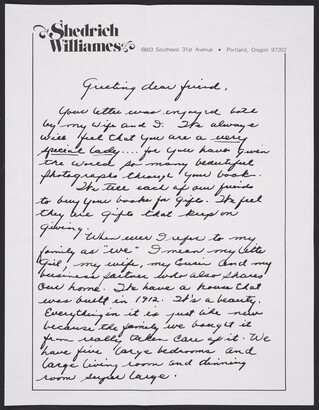 Shedrich
Williames
6603 Southeast 31st Avenue • Portland, Oregon 97202
Greeting dear friend,
Your letter was enjoyed both
by my wife and I. We always
will feel that you are a very
special lady.... for you have given
the world so many beautiful
photographs through your book.
We tell each of our friends
to buy your books for gifts. We feel
they are gifts that keep on
giving.
When ever I refer to my
family as "we" I mean my little
girl, my wife, my cousin and my
business partner who also shares
our home. We have a house that
was built in 1912. It's a beauty.
Everything in it is just like new
because the family we bought it
from really taken care of it. We
have five large bedrooms and
large living room and dinning
room super large.